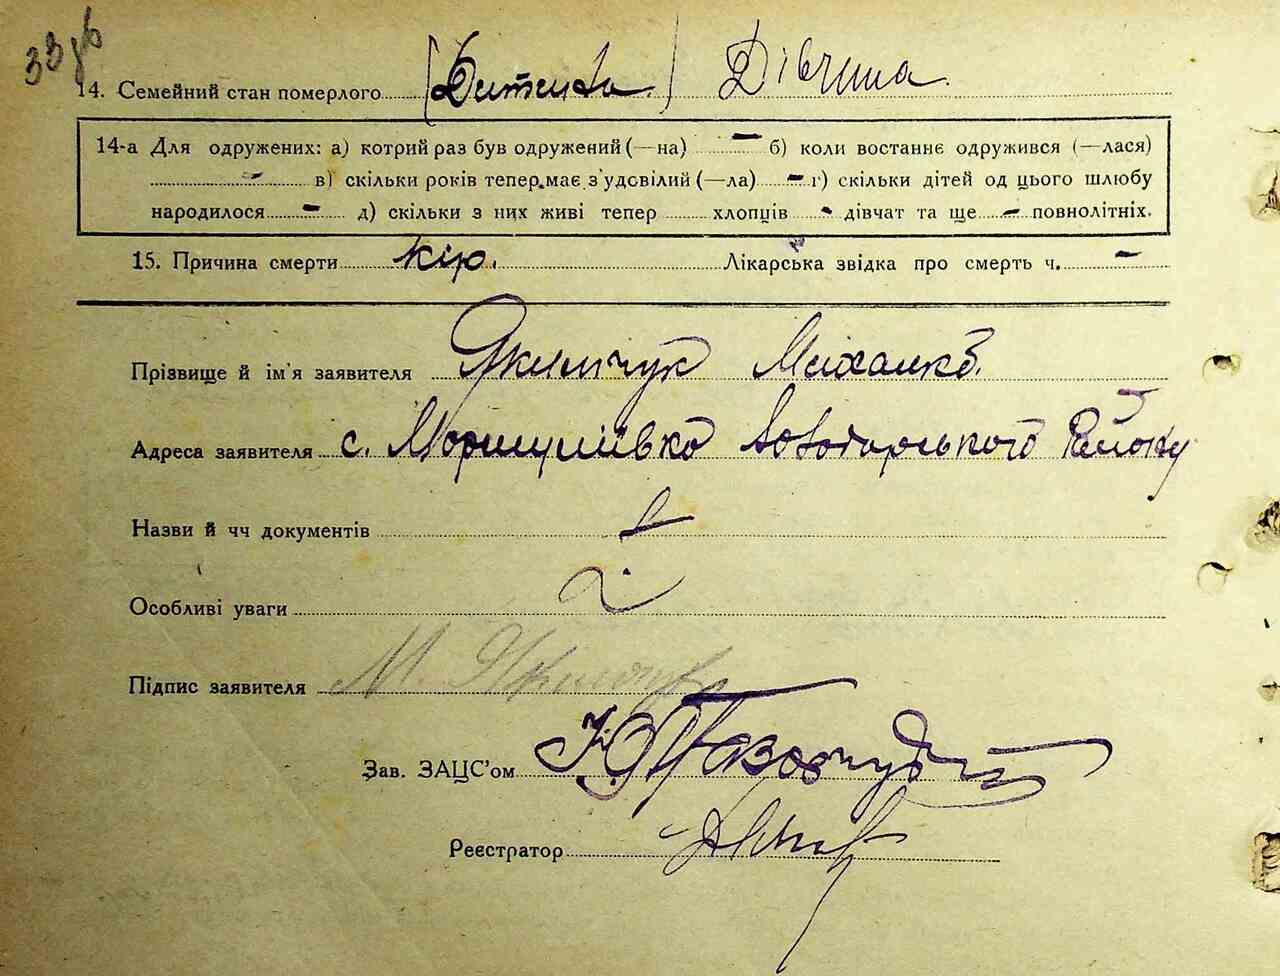 33 зв
14. Семейний стан померлого (Дитина) Дівчина.
14-а Для одружених: а) котрий раз був одружений (—на) – б) коли востаннє одружився (—лася)
– в) скільки років тепер має з'удовілий (—ла) – г) скільки дітей од цього шлюбу
народилося – д) скільки з них живі тепер хлопців - дівчат та ще – повнолітніх.
15. Причина смерти кір. Лікарська звідка про смерть ч. –
Прізвище й ім'я заявителя Якимчук Михайло.
Адреса заявителя с. Мормуліівка Володарського Району
Назви й чч документів
Особливі уваги
Підпис заявителя М. Якимчук
Зав. ЗАЦС'ом
Реєстратор